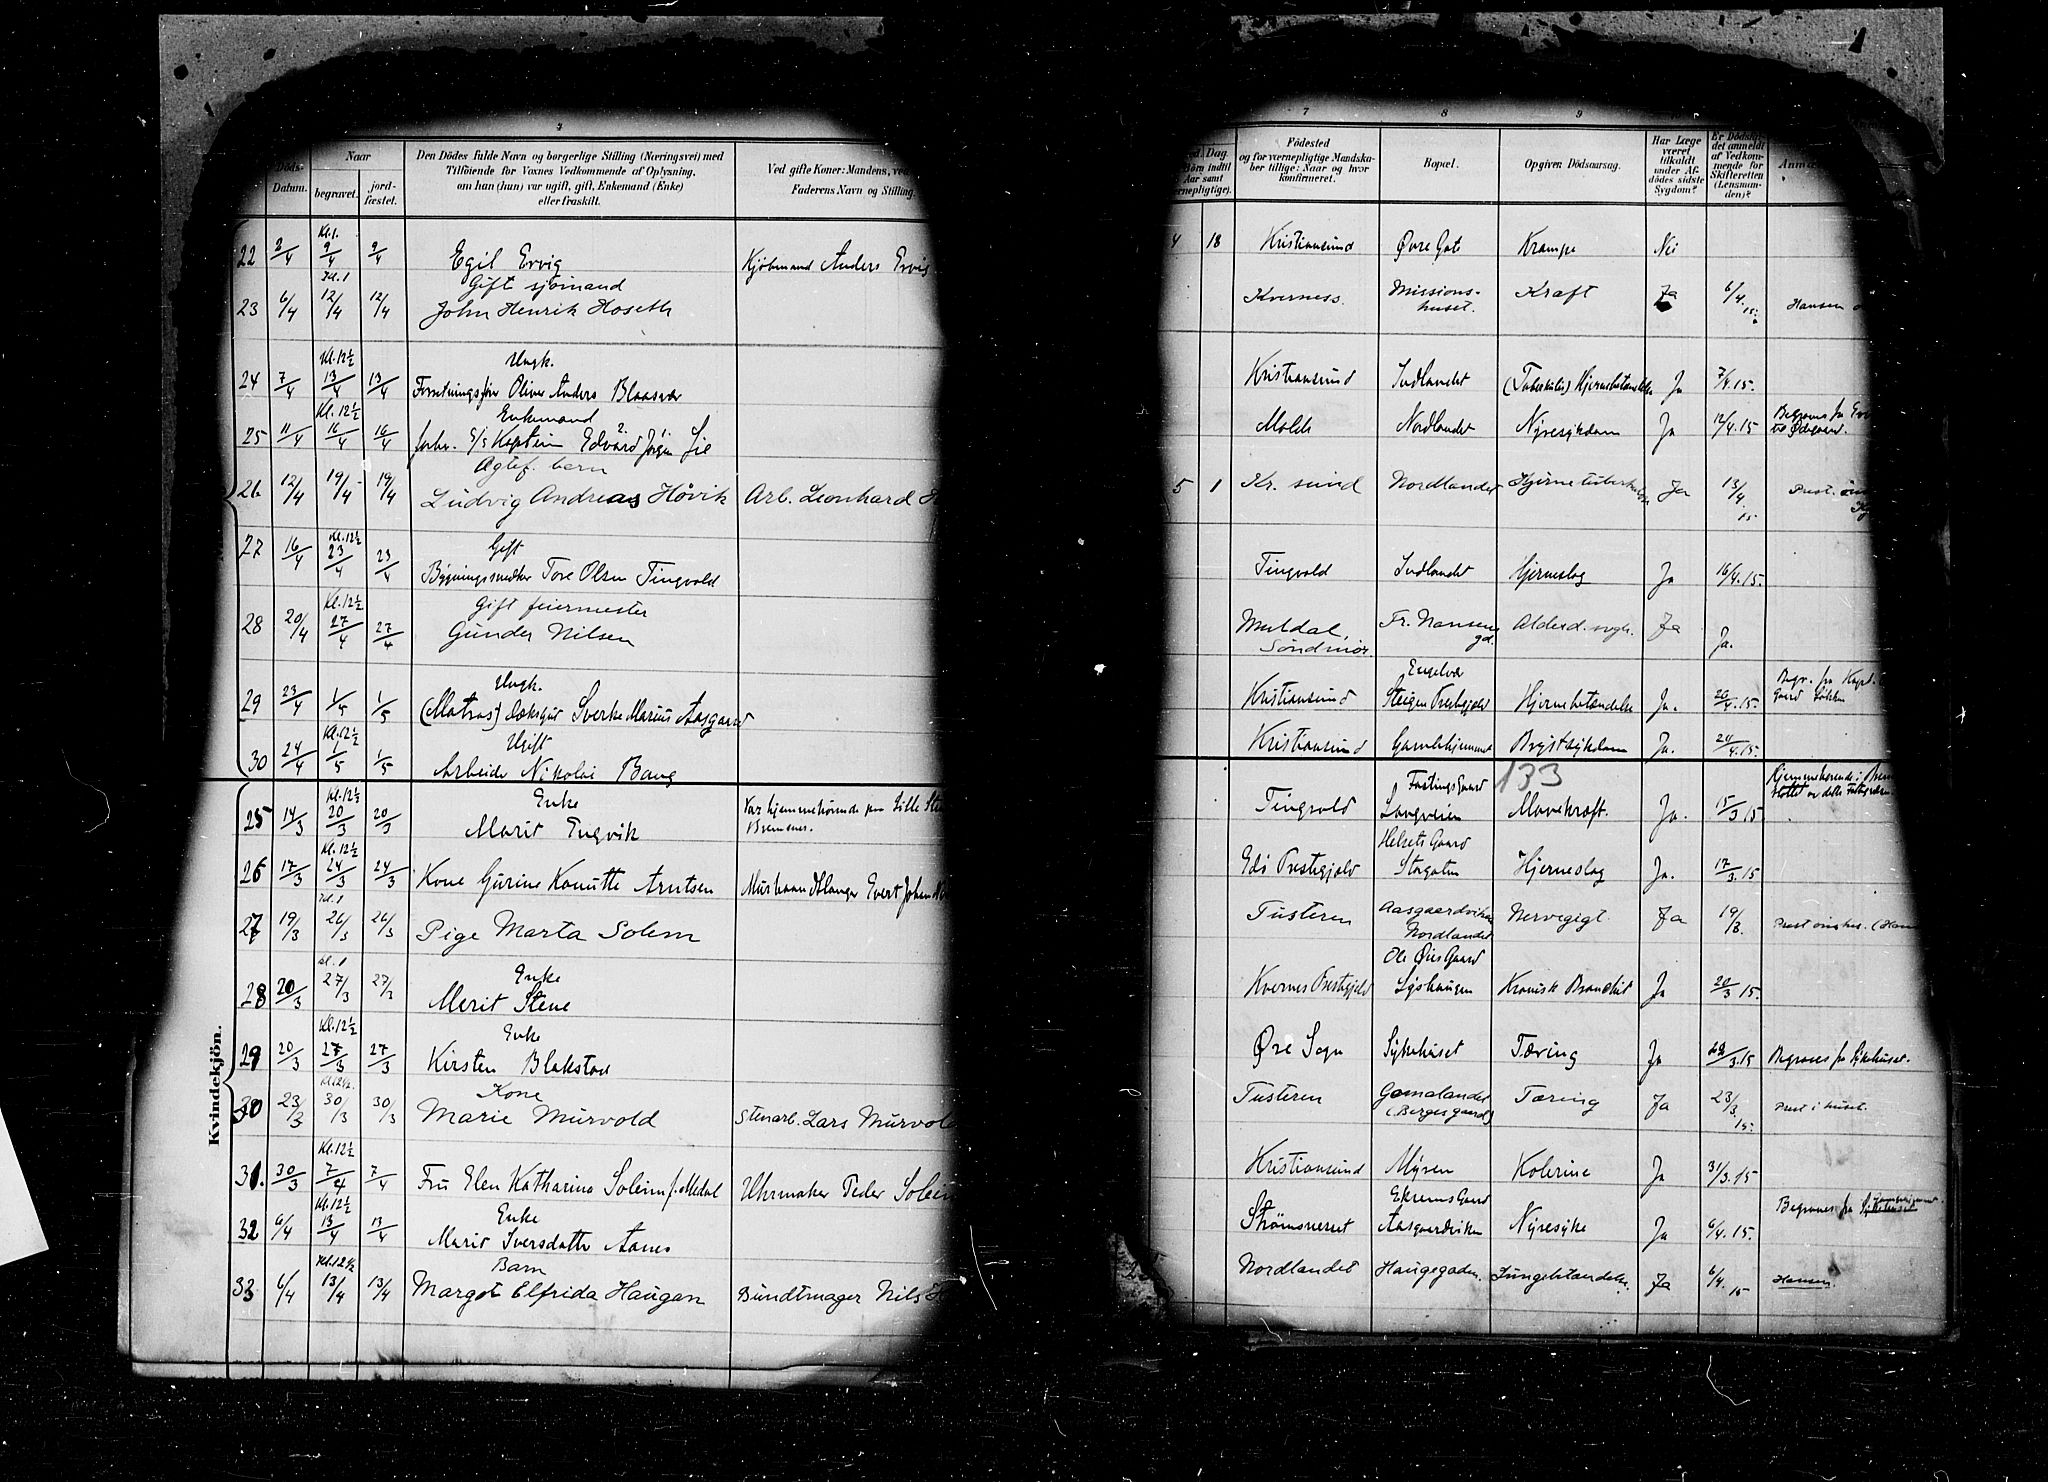 4
Döds-
Datum.
Naar
begravet.
jord-
fæstet.
Den Dödes fulde Navn og borgerlige Stilling (Næringsvei) med
Tilföiende for Voxnes Vedkommende af Oplysning,
om han (hun) var ugift, gift, Enkemand (Enke)
eller fraskilt.
Ved gifte Koner: Mandens, ved
Faderens Navn og Stilling.
Kl. 1
22 2/4 9/4 9/4 Egil Ervig Kjöbmand Anders Ervig
Kl. 1 Gift sjömand
23 6/4 12/4 12/4 John Henrik Hoseth
Kl. 12 1/2 Ungk.
24 7/4 13/4 13/4 Forretningsfører Oliver Anders Blaasvær
Kl. 12 1/2 Enkemand
25 11/4 16/4 16/4 forhv. S/S Kaptein Edvard Jørgen Lie
Ægtef. barn
26 12/4 19/4 19/4 Ludvig Andreas Håvik Arb. Leonhard H
Kl. 12 1/2 Gift
27 16/4 23/4 23/4 Bygningssnedker Tore Olsen Tingvold
Kl. 12 1/2 Gift feiermester
28 20/4 27/4 27/4 Gunder Nilsen
Ungk.
29 23/4 1/5 1/5 (Matros) Dæksgut Sverke Marius Aasgaard
Kl. 12 1/2 Ugift
30 24/4 1/5 1/5 Arbeider Nikolai Bang
Kvindekjön.
Kl. 12 1/2 Enke
25 14/3 20/3 20/3 Marit Engvik Var hjemmehørende paa Lille
Bremsnes.
Kl. 12 1/2
26 17/3 24/3 24/3 Kone Gurine Konutte Arntsen Evert Johan
Kl. 1
27 19/3 26/3 26/3 Pige Marta Solem
Kl. 1 Enke
28 20/3 27/3 27/3 Merit Stene
Kl. 12 1/2 Enke
29 20/3 27/3 27/3 Kirsten Blakstad
Kl. 12 1/2. Kone
30 23/3 30/3 30/3 Marie Murvold Stenarb. Lars Murvold
Kl. 12 1/2
31. 30/3 7/4 7/4 Fru Elen Katharina Soleim f. Medal Uhrmaker Peder Soleim
Kl. 12 1/2 Enke
32 6/4 13/4 13/4 Marit Iversdatter Aanes
Kl. 12 1/2 Barn
33 6/4 13/4 13/4 Margot Elfrida Haugan Bundtmager Nils H
7
8
9
Dag
Börn indtil
Aar samt
rnepligtige).
Födested
og for værnepligtige Mandska-
ber tillige: Naar og hvor
konfirmeret.
Bopæl.
Opgiven Dödsaarsag.
Har Læge
været
tilkaldt
under Af-
dödes sidste
Sygdom?
Er Dödsfal-
det anmeldt
af Vedkom-
mende for
Skifteretten
(Lensman-
den)?
Anm
4 18 Kristiansund Øvre Gate Krampe Nei
Kverness. Missions-
huset. Kraft Ja 6/4 15. Hansen
Kristiansund Indlandet (Tuberkuløs) Hjernebetændelse Ja 7/4 15.
Molde Nordlandet Nyresykdom Ja 12/4. 15 Begraves fra
Ødegaard.
5 1 Kr. sund Nordlandet Hjernetuberkulose Ja 13/4 15 Prest.
Tingvold Indlandet Hjerneslag Ja 16/4. 15.
Muldal,
Söndmör. Fr. Nansens
gd. Alderd. svgh. Ja Ja.
Kristiansund Engelvær
Steigen Prestegjeld Hjernebetændelse Ja. 20/4. 15. Begr. fra Kapt.
Gaard Løkken
Kristiansund Gamlehjemmet Brystsykdom Ja. 24/4. 15.
133
Tingvold Fastings Gaard
Langveien Mavekræft. Ja. 15/3 15 Hjemmehørende i
Edö Prestegjeld Helsets Gaard
Storgaten Hjerneslag Ja. 17/3. 15
Tusteren Aasgaardviken
Nordlandet Nervegigt. Ja 19/3. Prest önskes. (Han
Kvernes Prestegjeld Ole Øies Gaard
Lyshaugen Kronisk Bronchit Ja 20/3 15.
Øre Sogn Sykehuset Tæring Ja 22/3. 15 Begraves fra Sykehuset.
Tusteren Gomalandet
(Berges gaard) Tæring Ja 23/3. 15. Prest i huset.
Kristiansund Myren Kolerine Ja 31/3. 15
Strømsneset Ekrems Gaard
Aasgaardviken Nyresyke Ja 6/4. 15. Begraves fra
Nordlandet Haugegaden. Lungebetændelse Ja 6/4. 15 Hansen.